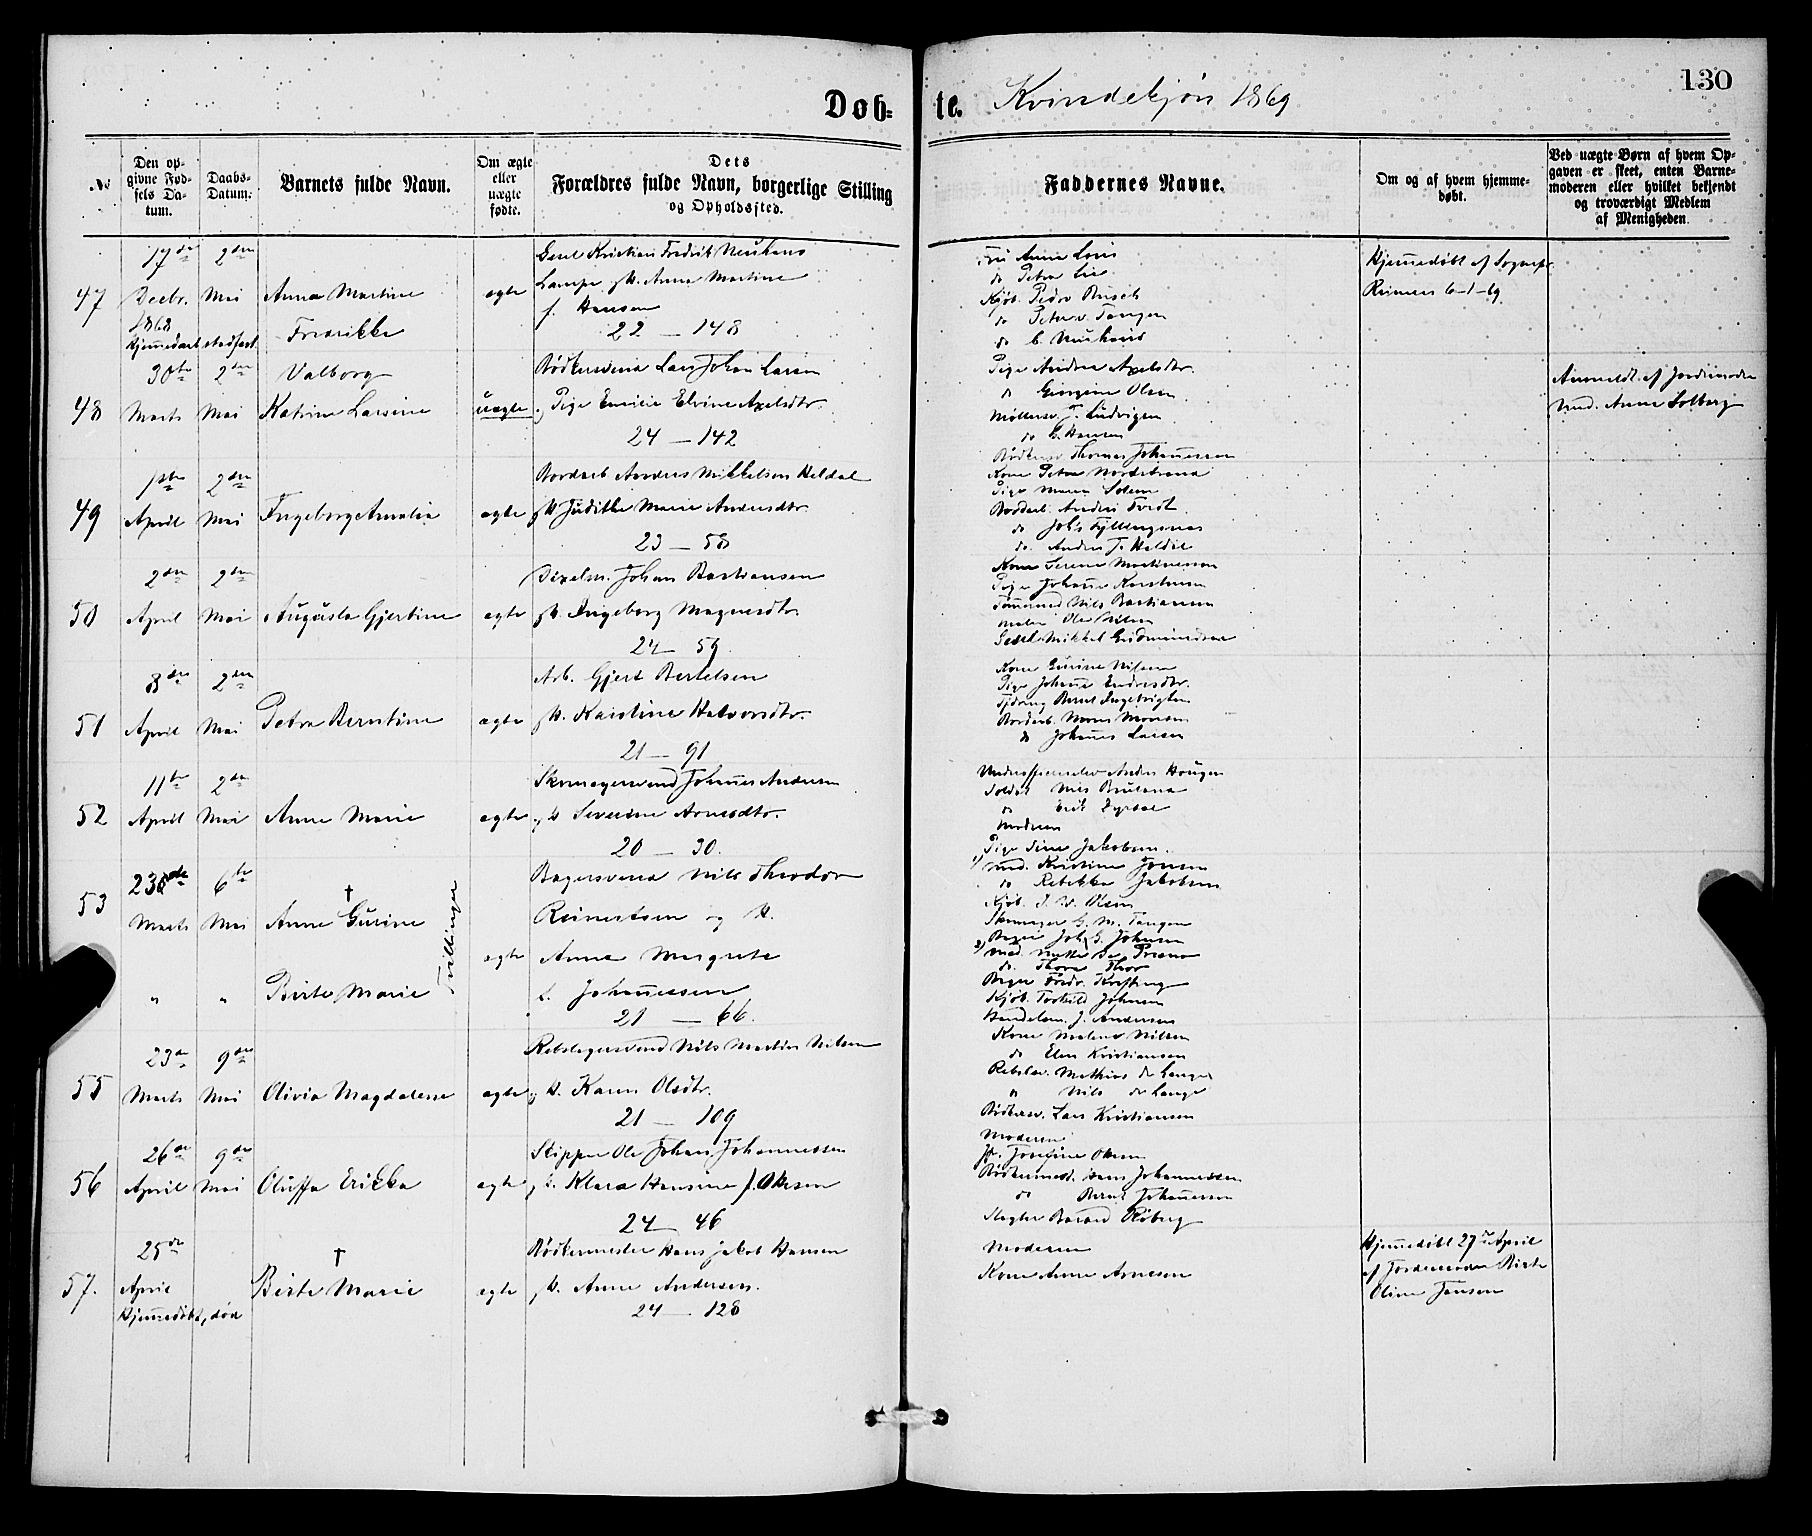 130
Døb= te. Kvindekjøn 1869
No
Den op-
givne Fød-
sels Da-
tum.
Daabs-
Datum.
Barnets fulde Navn.
Om ægte
eller
uægte
fødte.
Dets
Forældres fulde Navn, borgerlige Stilling
og Opholdssted.
Faddernes Navne.
Om og af hvem hjemme-
døbt.
Ved uægte Børn af hvem Op-
gaven er skeet, enten Barne-
moderen eller hvilket bekjendt
og troværdigt Medlem
af Menigheden.
47
17de
Decbr.
1868
2den
Mai
Anna Martine
Fredrikke
ægte
Kristian Fredrik Neuhaus
Anna Martine
f. Hansen
22 — 148
Fru Anna
do Petra Lie
Kjøb. Peder Busch
do Peter v. Tangen
do C. Neuhaus
Hjemmedøbt af Sognepr.
Reimers 6-1-69
48
30te
Marts
2den
Mai
Valborg
Katrine Larsine
uægte
Bødkersvend Lars Johan Larsen
Pige Emilie Elvine Axelsdtr.
24 — 142
Pige Andrea Axelsdtr.
do Georgine Olsen
Møllersv. T. Ludvigsen
do Hansen
Bødkersv Thomas Johannessen
Anmeldt af Jordmoder
Mad. Anna Solberg
49
1ste
April
2den
Mai
Ingeborg Amalia
ægte
Bordarb Anders Mikkelsen Heldal
H. Judithe Marie Andersdtr.
23 — 58
Kone Petra Nordstrand
Pige Maren Solem
Bordarb. Anders
do Johs Fyllingsnes
do. Anders T. Heldal
50
2den
April
2den
Mai
Augusta Gjertine
ægte
Johan Bastiansen
H. Ingeborg Magnesdtr.
24 — 59.
Kone Serena Martinesson
Pige Johanne Karstensen
Tømmermd Nils Bastiansen
Maler Ole Nilsen
Mikkel Gudmundsen
51
8de
April
2den
Mai
Petra Berntine
ægte
Arb. Gjert Bertelsen
H. Karoline Halvorsdtr.
21 — 91
Kone Gurine Nilsen
Pige Johanne Endresdtr.
Bernt Ingebrigtsen
Bordarb. Mons Monsen
do Johannes Larsen
52
11te
April
2den
Mai
Anne Marie
ægte
Skomagersvend Johannes Andersen
Severine Arnesdtr.
20 — 30.
Underofficerselev Anders Hougen
Soldat Nils
do Erik
Moderen
Pige Sina Jakobsen.
53
Marts
6te
Mai
†
Anne Gurine
Tvillinger
ægte
Bagersvend Nils Theodor
Reinertsen og H.
Anna Margrete
f. Johannessen
21 — 66.
" " Birte Marie
1) Mad. Kristine Jonsen
do Rebekka Jakobsen
Kjøb. J. W. Olsen
Skomager G. M. Tangen
Bager Joh. G. Johnsen
2) Mad. Mette
do. Thora Thor
Bager Fredr. Krefting
Kjøb. Torkild Johnsen
Handelsm. J. Andersen
55
23de
Marts
9de
Mai
Olivia Magdalene
ægte
Rebslagersvend Nils Martin Nilsen
H. Karen Olsdtr.
21 — 109
Kone Malene Nilsen
do Elen Kristiansen
Rebslsv. Mathias de Lange
do Nils de Lange
Bødkersv. Lars Kristiansen
56
26de
April
9de
Mai
Oluffa Erikka
ægte
Skipper Ole Johan Johannessen
H. Klara Hansine f. Olsen
24 — 46
Moderen
Josefine Olsen
Bødkermest. Hans Johannessen
do Bernt Johannessen
Slagter
57.
25de
April
Hjemmedøbt, død
†
Birte Marie
ægte
Bødkermester Hans Jakob Hansen
H. Anne Andersen.
24 — 128
Moderen
Kone Anne Arnesen
Hjemmedøbt 27de April
af Jordemoder Birte
Oline Jansen